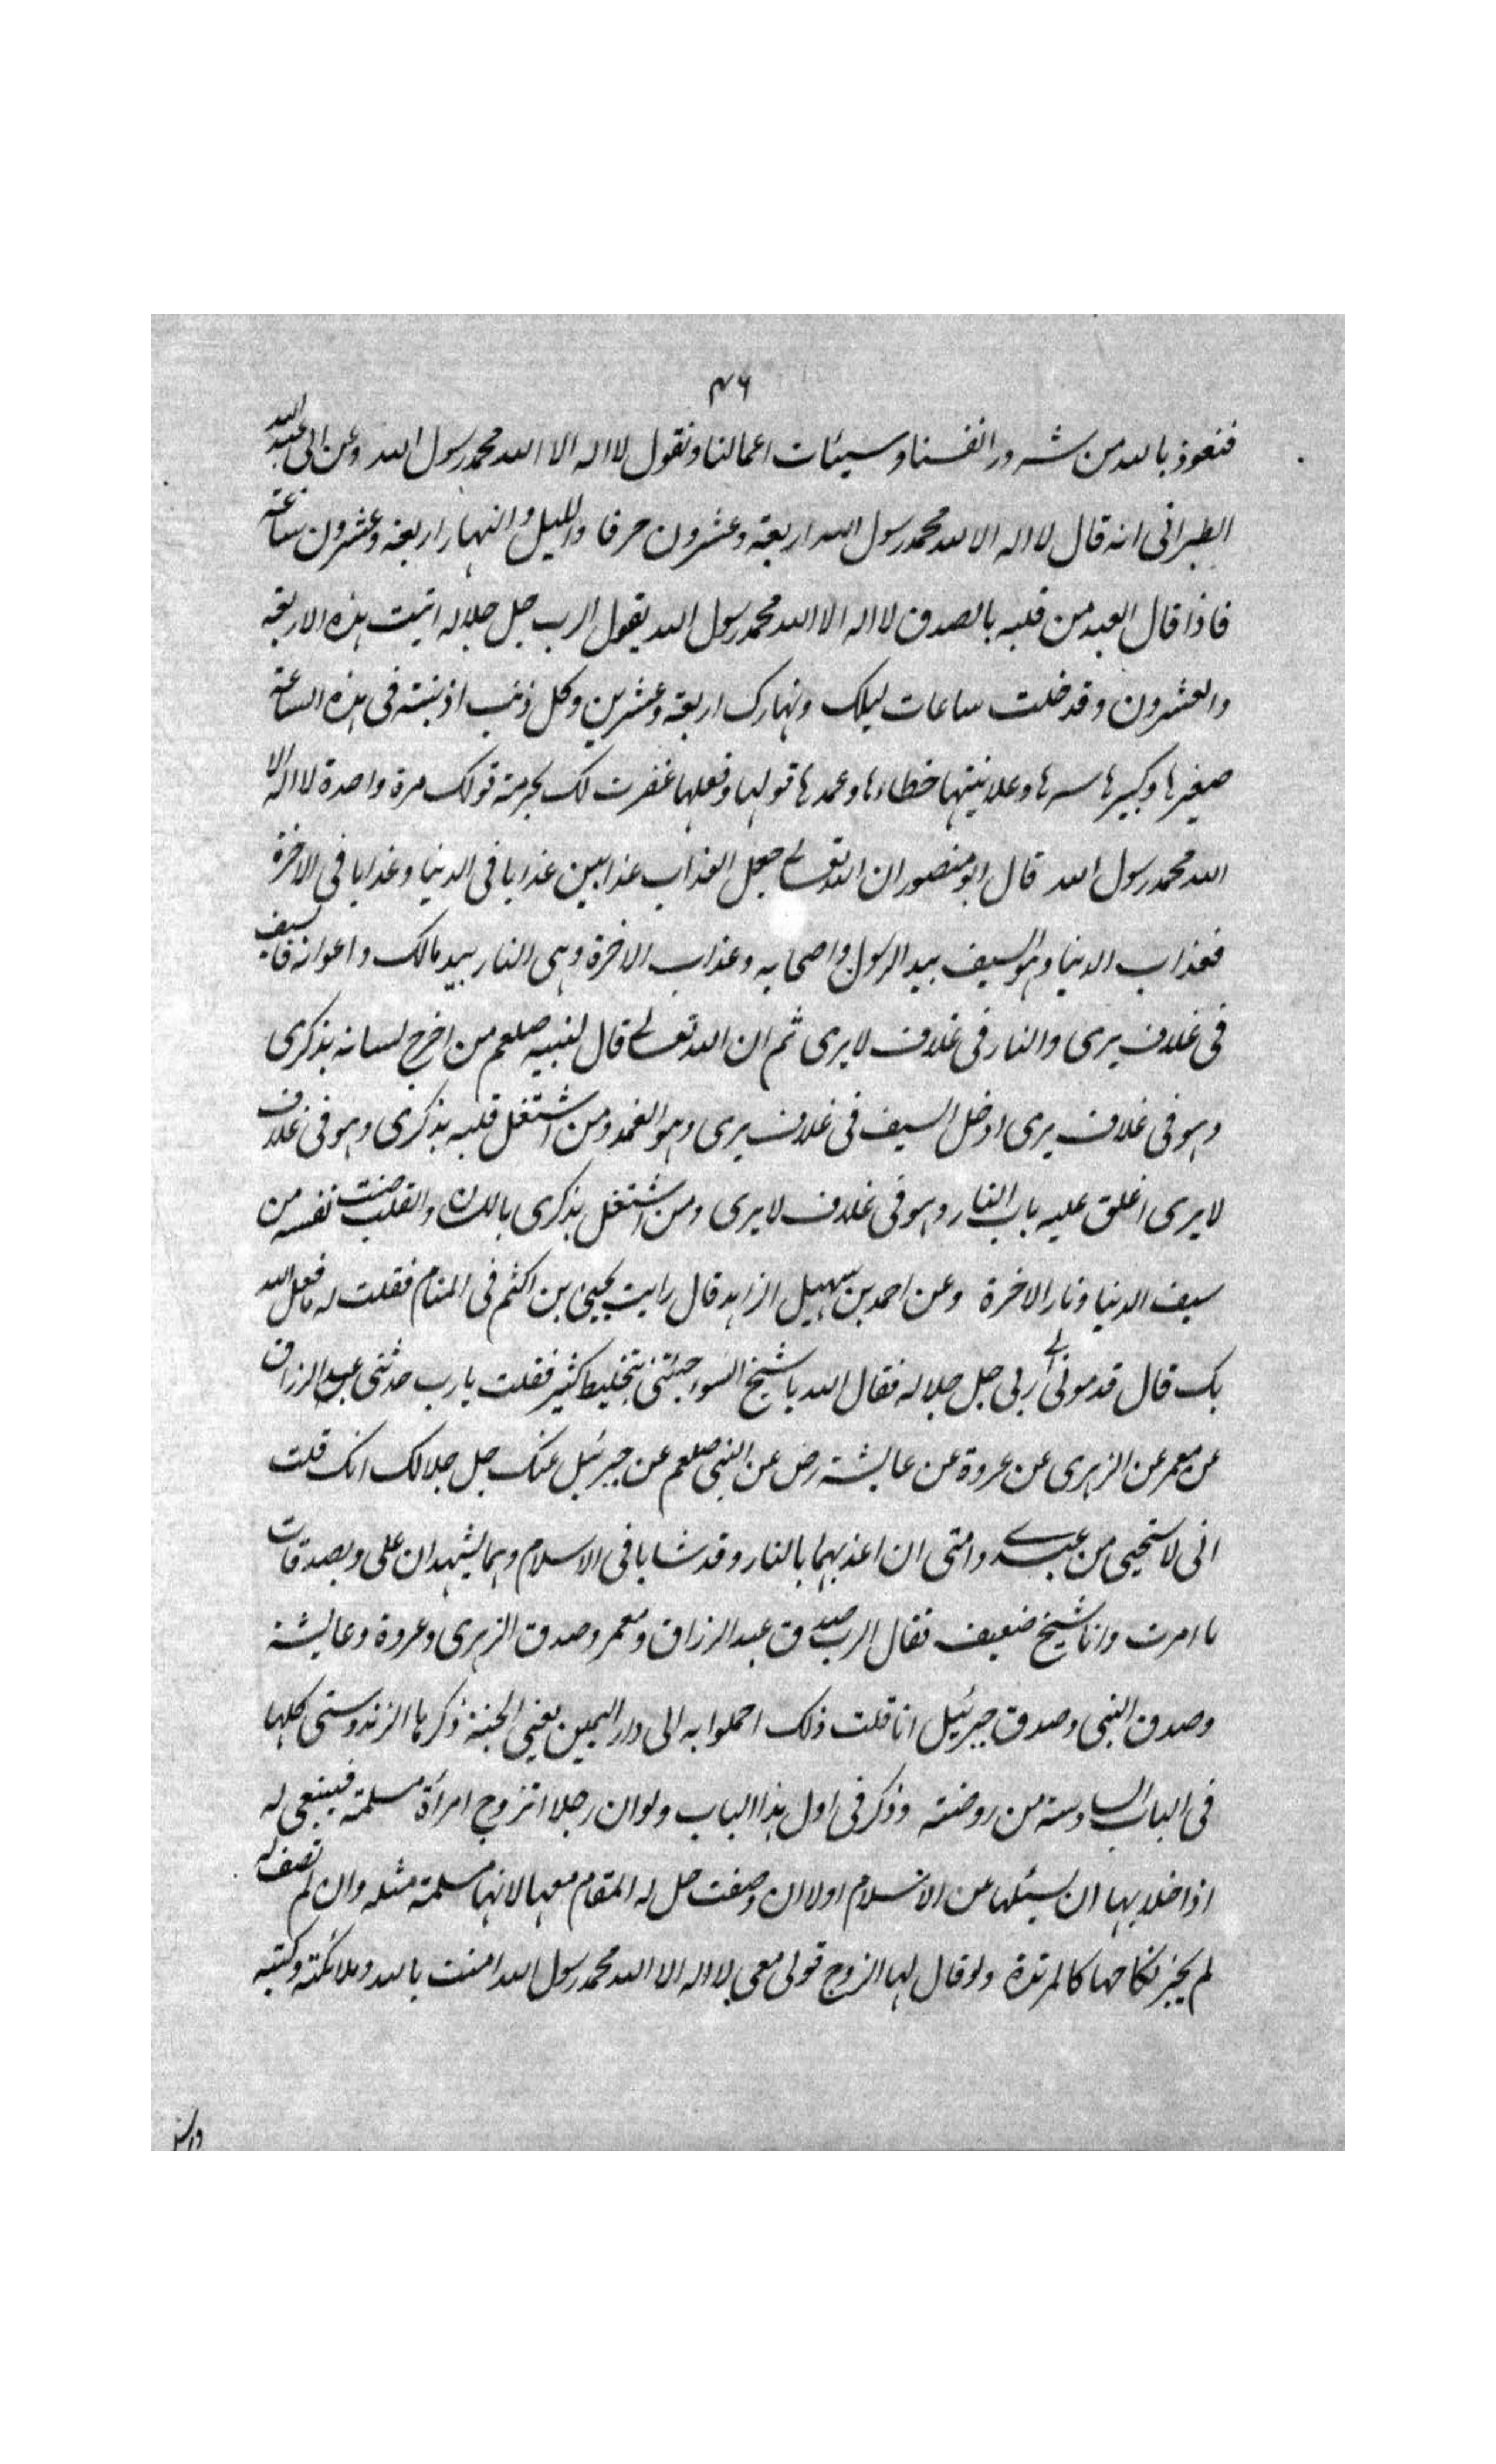 ٤٦
فنعوذ بالله من شرور انفسنا وسيئات اعمالنا ونقول لا اله الا الله محمد رسول الله وعن ابى عبد الله
الطبرانى انه قال لا اله الا الله محمد رسول الله اربعة وعشرون حرفا والليل والنهار اربعة وعشرون ساعة
فاذا قال العبد من قلبه بالصدق لا اله الا الله محمد رسول الله يقول الرب جل جلاله اتيت بهذه الاربعة
والعشرون وقد خلت ساعات ليلك ونهارك اربعة وعشرين وكل ذنب اذنبته فى هذه الساعة
صغيرها وكبيرها سرها وعلانيتها خطاءها وعمدها قولها وفعلها غفرت لك بحرمة قولك مرة واحدة لا اله الا
الله محمد رسول الله قال ابو منصور ان الله تعالى جعل العذاب عذابين عذابا فى الدنيا وعذابا فى الاخرة
فعذاب الدنيا وهو السيف بيد الرسول واصحابه وعذاب الاخرة وهى النار بيد مالك واعوانه فالسيف
فى غلاف يرى والنار فى غلاف لا يرى ثم ان الله تعالى قال لنبيه صلعم من اخرج لسانه بذكرى
وهو فى غلاف يرى ادخل السيف فى غلاف يرى وهو الغمد ومن اشتغل قلبه بذكرى وهو فى غلاف
لا يرى اغلق عليه باب النار وهو فى غلاف لا يرى ومن اشتغل بذكرى باللسان والقلب نفسه من
سيف الدنيا ونار الاخرة وعن احمد بن سهيل الزاهد قال رايت يحيى بن اكثم فى المنام فقلت له ما فعل الله
بك قال قدمونى الى ربى جل جلاله فقال الله يا شيخ السوء جئتنى بتخليط كثير فقلت يا رب حدثنى عبد الرزاق
عن معمر عن الزهرى عن عروة عن عايشة رض عن النبى صلعم عن جبرئيل عنك جل جلالك انك قلت
انى لاستحيى من عبدى وامتى ان اعذبهما بالنار وقد شابا فى الاسلام وهما يشهدان على وبصدقات
ما امرت وانا شيخ ضعيف فقال الرب صدق عبد الرزاق ومعمر وصدق الزهرى وعروة وعايشة
وصدق النبى وصدق جبرئيل انا قلت ذلك احملوا به الى دار اليمين يعنى الجنة ذكرها الزندوستى كلها
فى الباب السادسة من روضته وذكر فى اول هذا الباب ولو ان رجلا تزوج امرأة مسلمة فينبغى له
اذا خلا بها ان يسئلها عن الاسلام اولا ان وصفت حل له المقام معها لانها مسلمة مثله وان لم تصف له
لم يجز نكاحها كالمرتدة ولو قال لها الزوج قولى معى لا اله الا الله محمد رسول الله امنت بالله وملائكته وكتبه